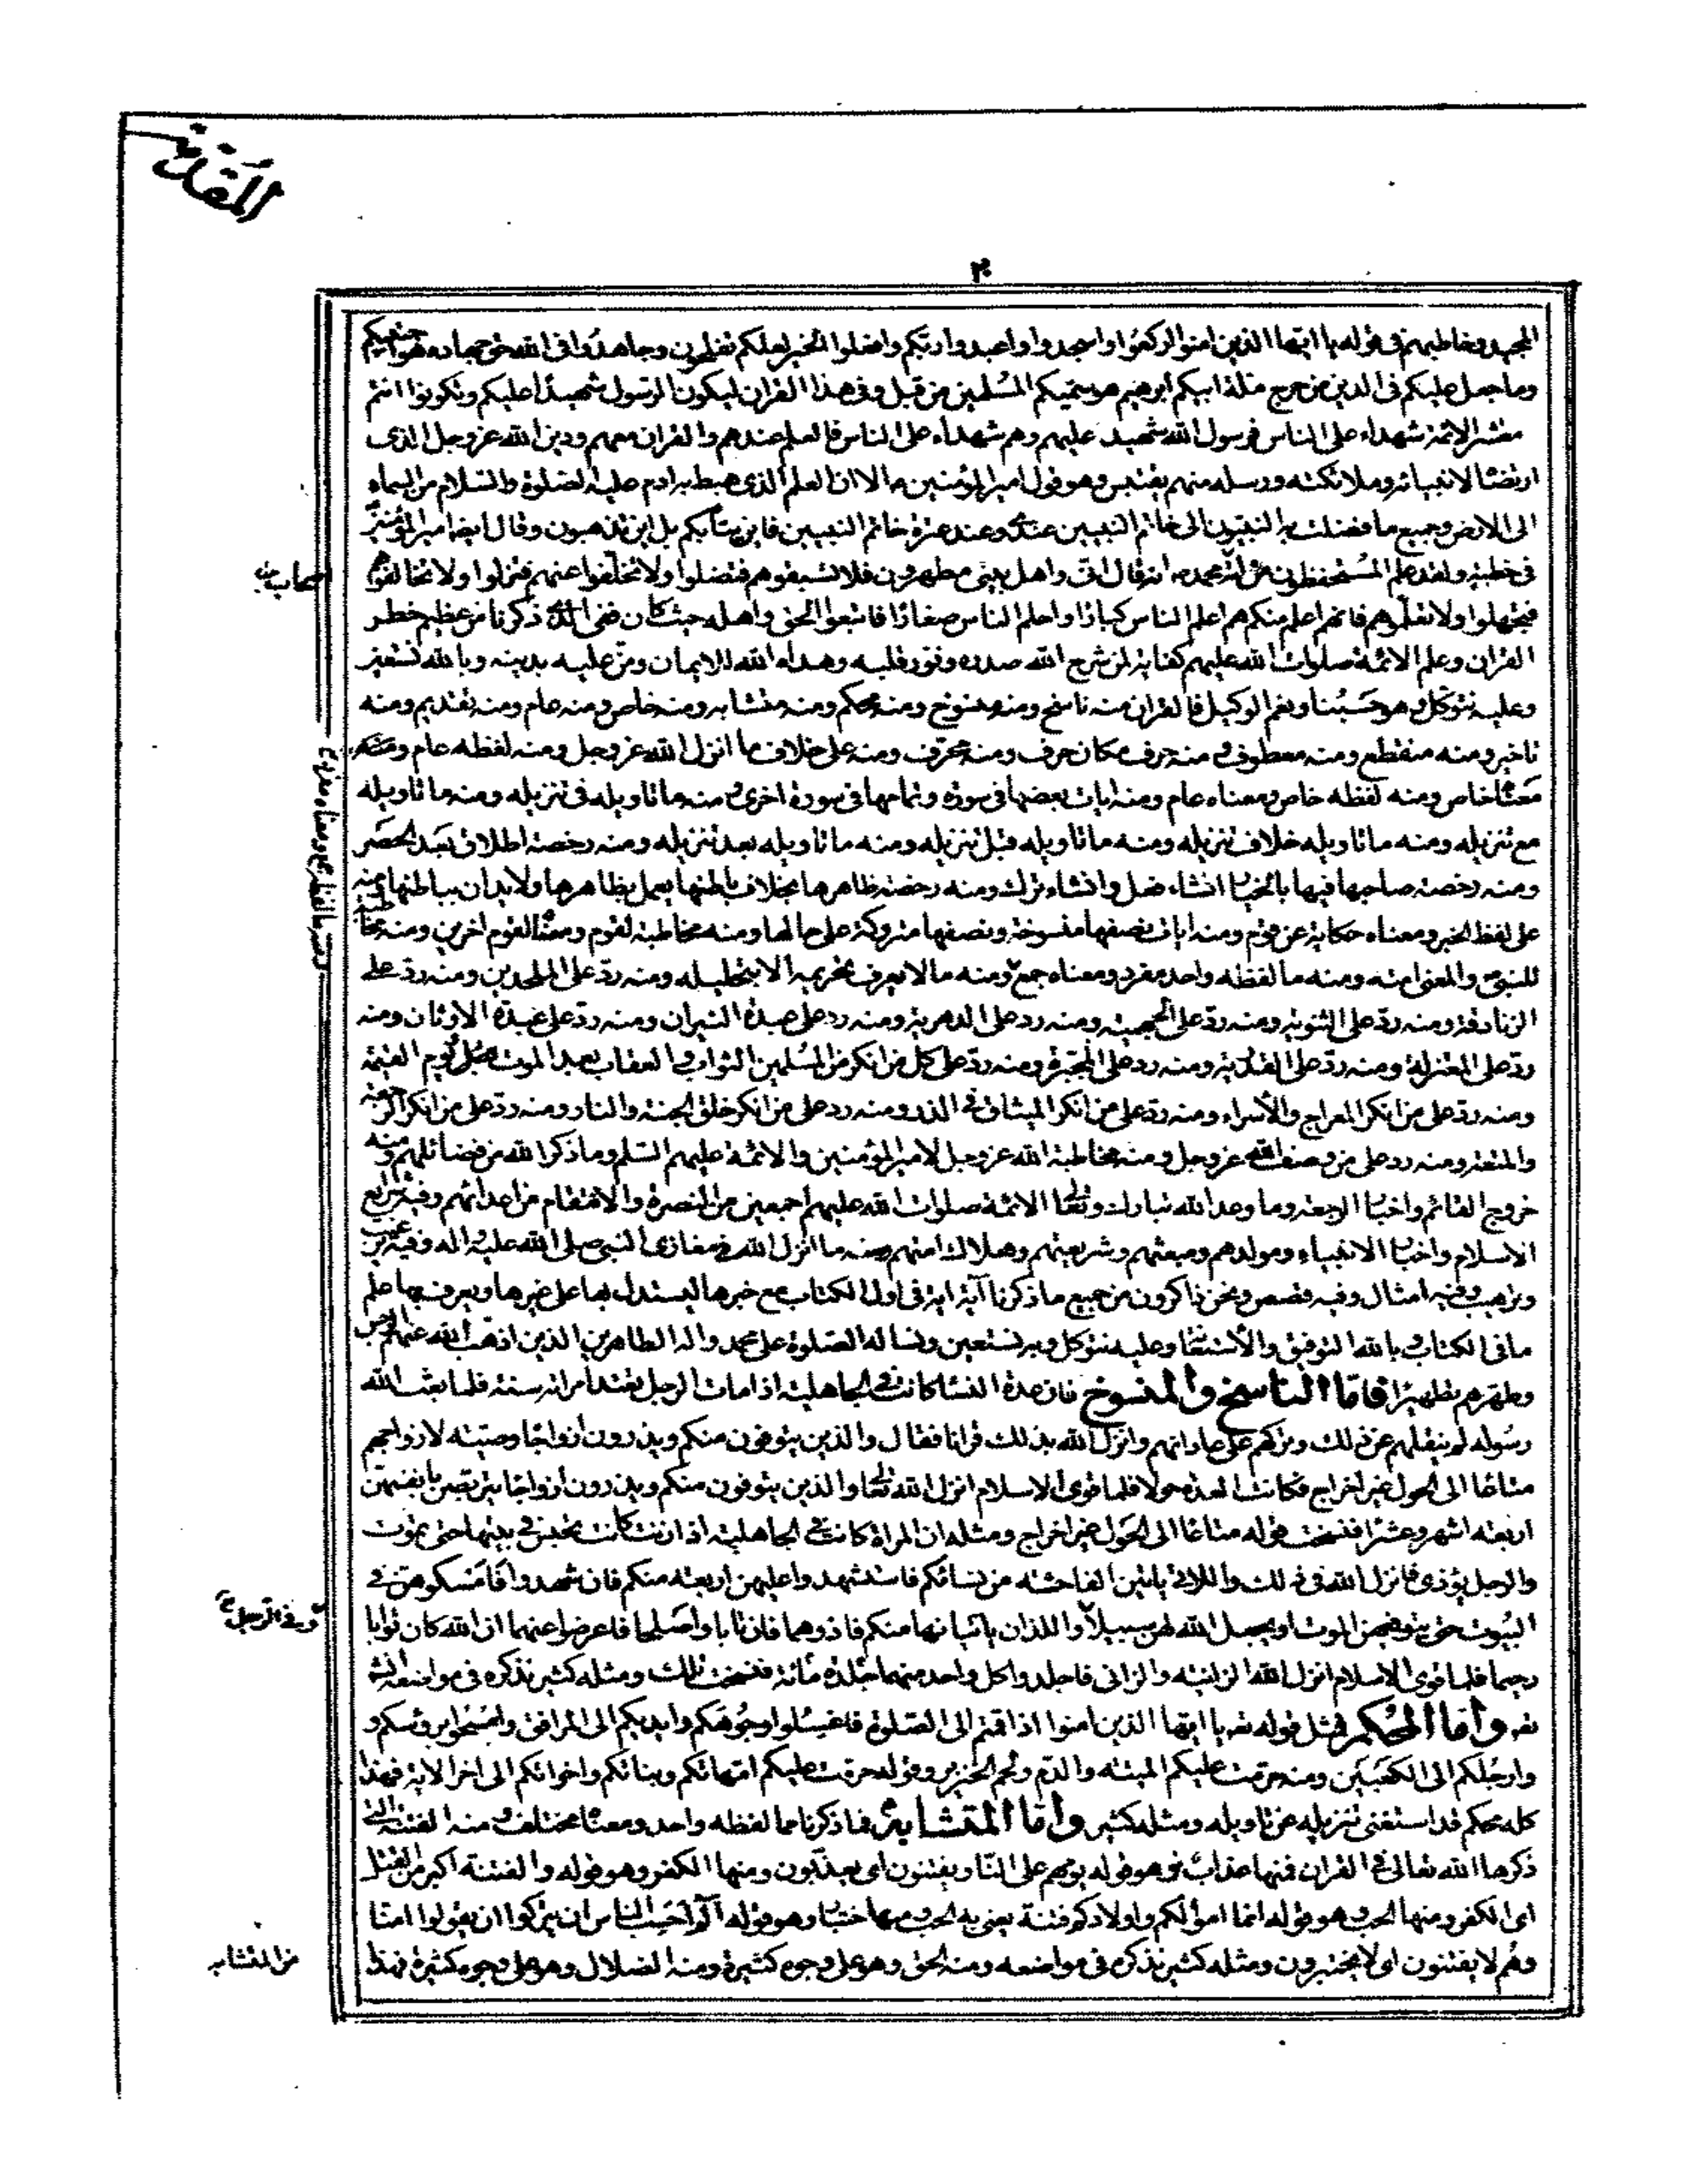 المقدمة
٢
المجيد وخاطبهم فى قوله يا ايها الذين امنوا اركعوا واسجدوا واعبدوا ربكم وافعلوا الخير لعلكم تفلحون وجاهدوا فى الله حق جهاده هو اجتبيكم
وما جعل عليكم فى الدين من حرج ملة ابيكم ابرهيم هو سميكم المسلمين من قبل وفى هذا القران ليكون الرسول شهيدا عليكم وتكونوا انتم
معشر الائمة شهداء على الناس فرسول الله شهيد عليهم وهم شهداء على الناس فالعلم عندهم والقران معهم ودين الله عز وجل الذى
ارتضاه لانبيائه وملائكته ورسله منهم يقتبس وهو قول امير المؤمنين ع الا ان العلم الذى هبط به ادم عليه الصلوة والسلام من السماء
الى الارض وجميع ما فضلت به النبيون الى خاتم النبيين عنده وعند عترة خاتم النبيين فاين يتاه بكم بل اين تذهبون وقال ايضا امير المؤمنين
فى خطبته ولقد علم المستحفظون من امة محمد ص انه قال انى واهل بيتى مطهرون فلا تسبقوهم فتضلوا ولا تخلفوا عنهم فتزلوا ولا تخالفوهم
فتجهلوا ولا تعلموهم فانهم اعلم منكم هم اعلم الناس كبارا واحلم الناس صغارا فاتبعوا الحق واهله حيث كان ففى الذى ذكرنا من عظيم خطر
القران وعلم الائمة صلوات الله عليهم كفاية لمن شرح الله صدره ونور قلبه وهداه الله للايمان ومن عليه بدينه وبالله نستعين
وعليه نتوكل وهو حسبنا ونعم الوكيل فالقران منه ناسخ ومنه منسوخ ومنه محكم ومنه متشابه ومنه خاص ومنه عام ومنه تقديم ومنه
تاخير ومنه منقطع ومنه معطوف ومنه حرف مكان حرف ومنه محرف ومنه على خلاف ما انزل الله عز وجل ومنه لفظه عام ومنه
معناه خاص ومنه لفظه خاص ومعناه عام ومنه ايات بعضها فى سورة وتمامها فى سورة اخرى ومنه ما تاويله فى تنزيله ومنه ما تاويله
مع تنزيله ومنه ما تاويله خلاف تنزيله ومنه ما تاويله قبل تنزيله ومنه ما تاويله بعد تنزيله ومنه رخصة اطلاق بعد الحصر
ومنه رخصة صاحبها فيها بالخيار انشاء فعل وانشاء ترك ومنه رخصة ظاهرها بخلاف باطنها يعمل بظاهرها ولا يدان بباطنها ومنه
على لفظ الخبر ومعناه حكاية عن قوم ومنه ايات نصفها منسوخة ونصفها متروكة على حالها ومنه مخاطبة لقوم ومعناه لقوم اخرين ومنه مخاطبة
للنبى ص والمعنى امته ومنه ما لفظه واحد مفرد ومعناه جمع ومنه ما لا يعرف تحريمه الا بتحليله ومنه رد على الملحدين ومنه رد على
الزنادقة ومنه رد على الثنوية ومنه رد على الجهمية ومنه رد على الدهرية ومنه رد على عبدة النيران ومنه رد على عبدة الاوثان ومنه
رد على المعتزلة ومنه رد على القدرية ومنه رد على المجبرة ومنه رد على كل من انكر من المسلمين الثواب والعقاب بعد الموت قبل يوم القيمة
ومنه رد على من انكر المعراج والأسراء ومنه رد على من انكر الميثاق فى الذر ومنه رد على من انكر خلق الجنة والنار ومنه رد على من انكر الرجعة
والمتعة ومنه رد على من وصف الله عز وجل ومنه مخاطبة الله عز وجل لامير المؤمنين والائمة عليهم السلم وما ذكر الله من فضائلهم ومنه
خروج القائم واخبار الرجعة وما وعد الله تبارك وتعالى الائمة صلوات الله عليهم اجمعين من النصرة والانتقام من اعدائهم وفيه شرايع
الاسلام واخبار الانبياء ومولدهم ومبعثهم وشريعتهم وهلاك امتهم ومنه ما انزل الله فى مغازى النبى صلى الله عليه واله وفيه ترغيب
وترهيب وفيه امثال وفيه قصص ونحن ذاكرون من جميع ما ذكرنا آية اية فى اول الكتاب مع خبرها ليستدل بها على غيرها ويعرف بها علم
ما فى الكتاب وبالله التوفيق والأستعانة وعليه نتوكل وبه نستعين ونساله الصلوة على محمد واله الطاهرين الذين اذهب الله عنهم الرجس
وطهرهم تطهيرا فاما الناسخ والمنسوخ فان عدة النساء كانت فى الجاهلية اذا مات الرجل تعتد امراته سنة فلما بعث الله
رسوله لم ينقلهم عن ذلك وتركهم على عاداتهم وانزل الله بذلك قرانا فقال والذين يتوفون منكم ويذرون أزواجا وصية لازواجهم
متاعا الى الحول غير اخراج فكانت العدة حولا فلما قوى الاسلام انزل الله تعالى والذين يتوفون منكم ويذرون أزواجا يتربصن بانفسهن
اربعة اشهر وعشرا فنسخت قوله متاعا الى الحول غير اخراج ومثله ان المراة كانت فى الجاهلية اذا زنت كانت تحبس فى بيتها حتى تموت
والرجل يؤذى فانزل الله فى ذلك واللاتى ياتين الفاحشة من نسائكم فاستشهدوا عليهن اربعة منكم فان شهدوا فامسكوهن فى
البيوت حتى يتوفهن الموت او يجعل الله لهن سبيلا واللذان ياتيانها منكم فاذوهما فان تابا واصلحا فاعرضوا عنهما ان الله كان توابا
رحيما فلما قوى الاسلام انزل الله الزانية والزانى فاجلدوا كل واحد منهما جلدة مائة فنسخت تلك ومثله كثير نذكره فى مواضعه انشاء
تعه واما المحكم فمثل قوله تعه يا ايها الذين امنوا اذا قمتم الى الصلوة فاغسلوا وجوهكم وايديكم الى المرافق وامسحوا برؤسكم و
وارجلكم الى الكعبين ومنه حرمت عليكم الميتة والدم ولحم الخنزير وقوله حرمت عليكم امهاتكم وبناتكم واخواتكم الى اخر الاية فهذا
كله محكم قد استغنى تنزيله عن تاويله ومثله كثير واما المتشابه فما ذكرنا مما لفظه واحد ومعناه مختلف ومنه الفتنة التى
ذكرها الله تعالى فى القران فمنها عذاب وهو قوله يوم هم على النار يفتنون اى يعذبون ومنها الكفر وهو قوله والفتنة اكبر من القتل
اى الكفر ومنها الحب وهو قوله انما اموالكم واولادكم فتنة يعنى به الحب ومنها اختبار وهو قوله آلم احسب الناس ان يتركوا ان يقولوا امنا
وهم لا يفتنون اى لا يختبرون ومثله كثير نذكره فى مواضعه ومنه الحق وهو على وجوه كثيرة ومنه الضلال وهو على وجوه كثيرة فهذا
اصحاب
ومنه ما لفظه جمع ومعناه مفرد
وفى الرجل
من المتشابه